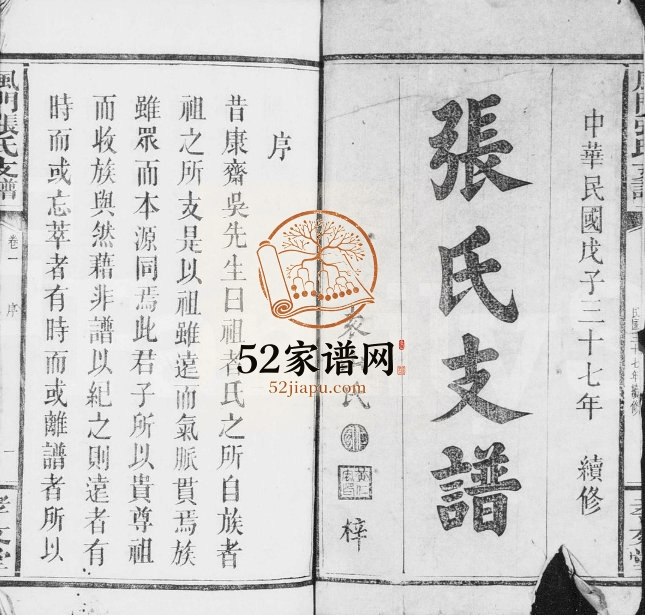 中華民國戊子三十七年 續修
張氏支譜
民
梓
序
昔康齋吳先生曰祖者氏之所自族者
祖之所支是以祖雖遠而氣脈貫焉族
雖眾而本源同焉此君子所以貴尊祖
而收族與然藉非譜以紀之則遠者有
時而或忘萃者有時而或離譜者所以
門張氏支譜
卷一
序
一
孝友堂
52家谱网
52jiapu.com